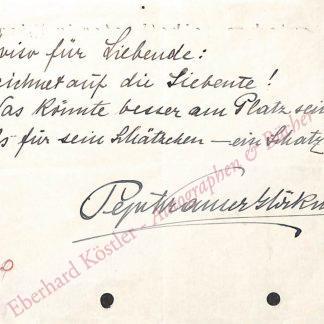 viso für Liebende:
eichnet auf die Siebente!
Was könnte besser am Platz sein
ls für sein Schätzchen – ein Schatz
Eberhard Köstler - Autographen & Bücher